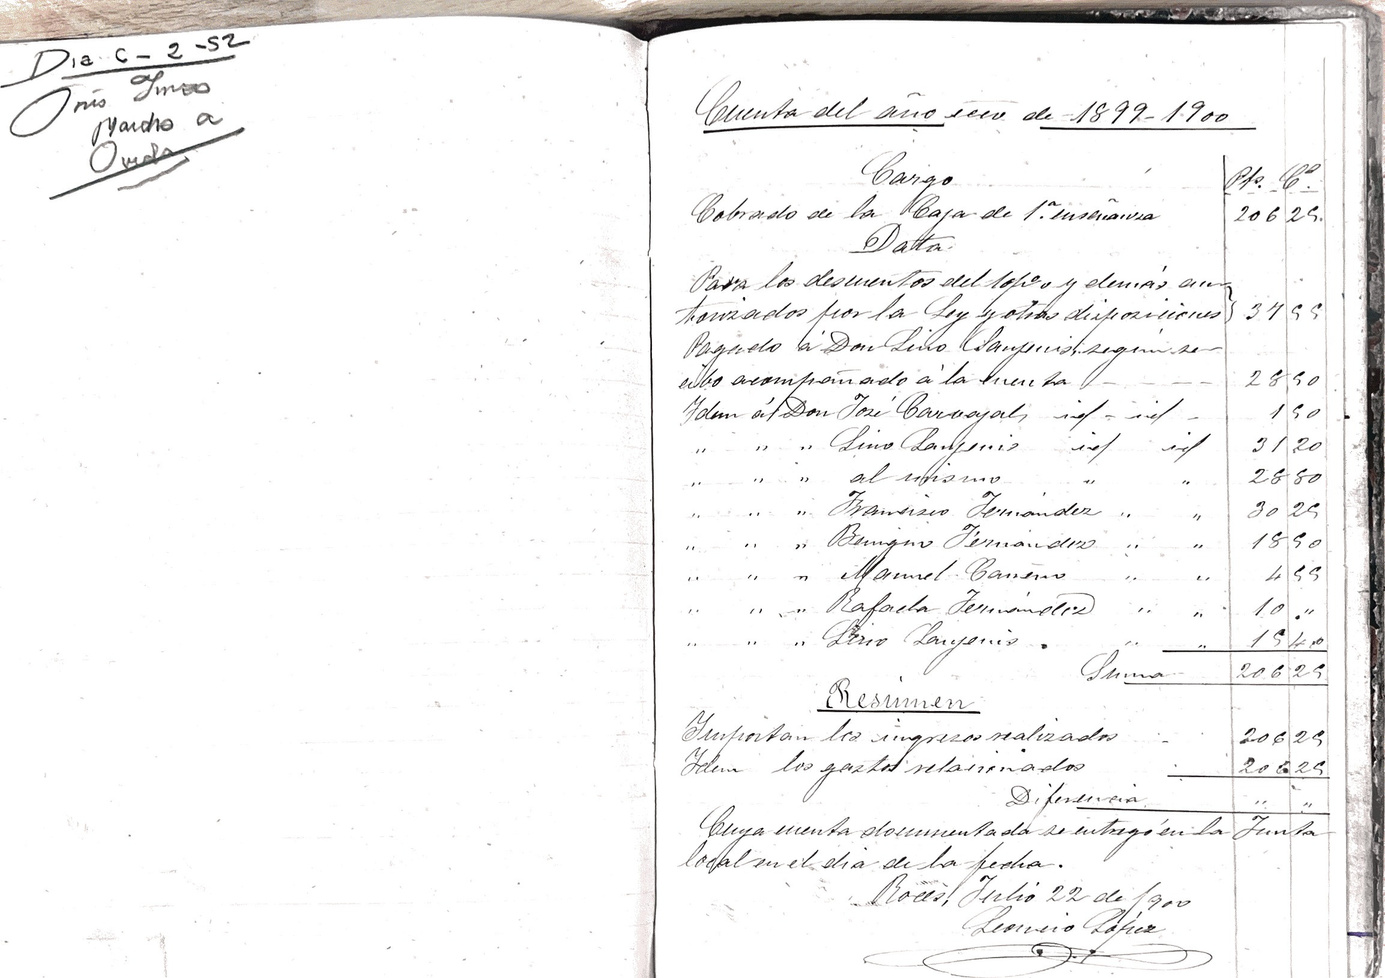 Dia 6-2-52
marcho a
Cuenta del año econ de 1899-1900
Cargo Pts. Cs.
Cobrado de la Caja de 1.ª enseñanza 206 25
Data
Para los descuentos del 10 p% y demás au-
torizados por la Ley y otras disposiciones 37 55
Pagado á Don Lino Sanjenis, según re-
cibo acompañado á la cuenta — — — — 28 50
Idem á Don José Carvajal, id - id - 1 50
" " " Lino Sanjenis id id 31 20
" " " al mismo " " 28 80
" " " Francisco Fernández " " 30 25
" " " Benigno Fernández " " 18 50
" " " Manuel Carreño " " 4 55
" " " Rafaela Fernández " " 10 "
" " " Lino Sanjenis " " 15 40
Suma 206 25
Resúmen
Importan los ingresos realizados - 206 25
Idem los gastos relacionados 206 25
Diferencia " "
Cuya cuenta documentada se entregó en la Junta
local en el dia de la fecha.
Roces, Julio 22 de 1900
Leoncio López